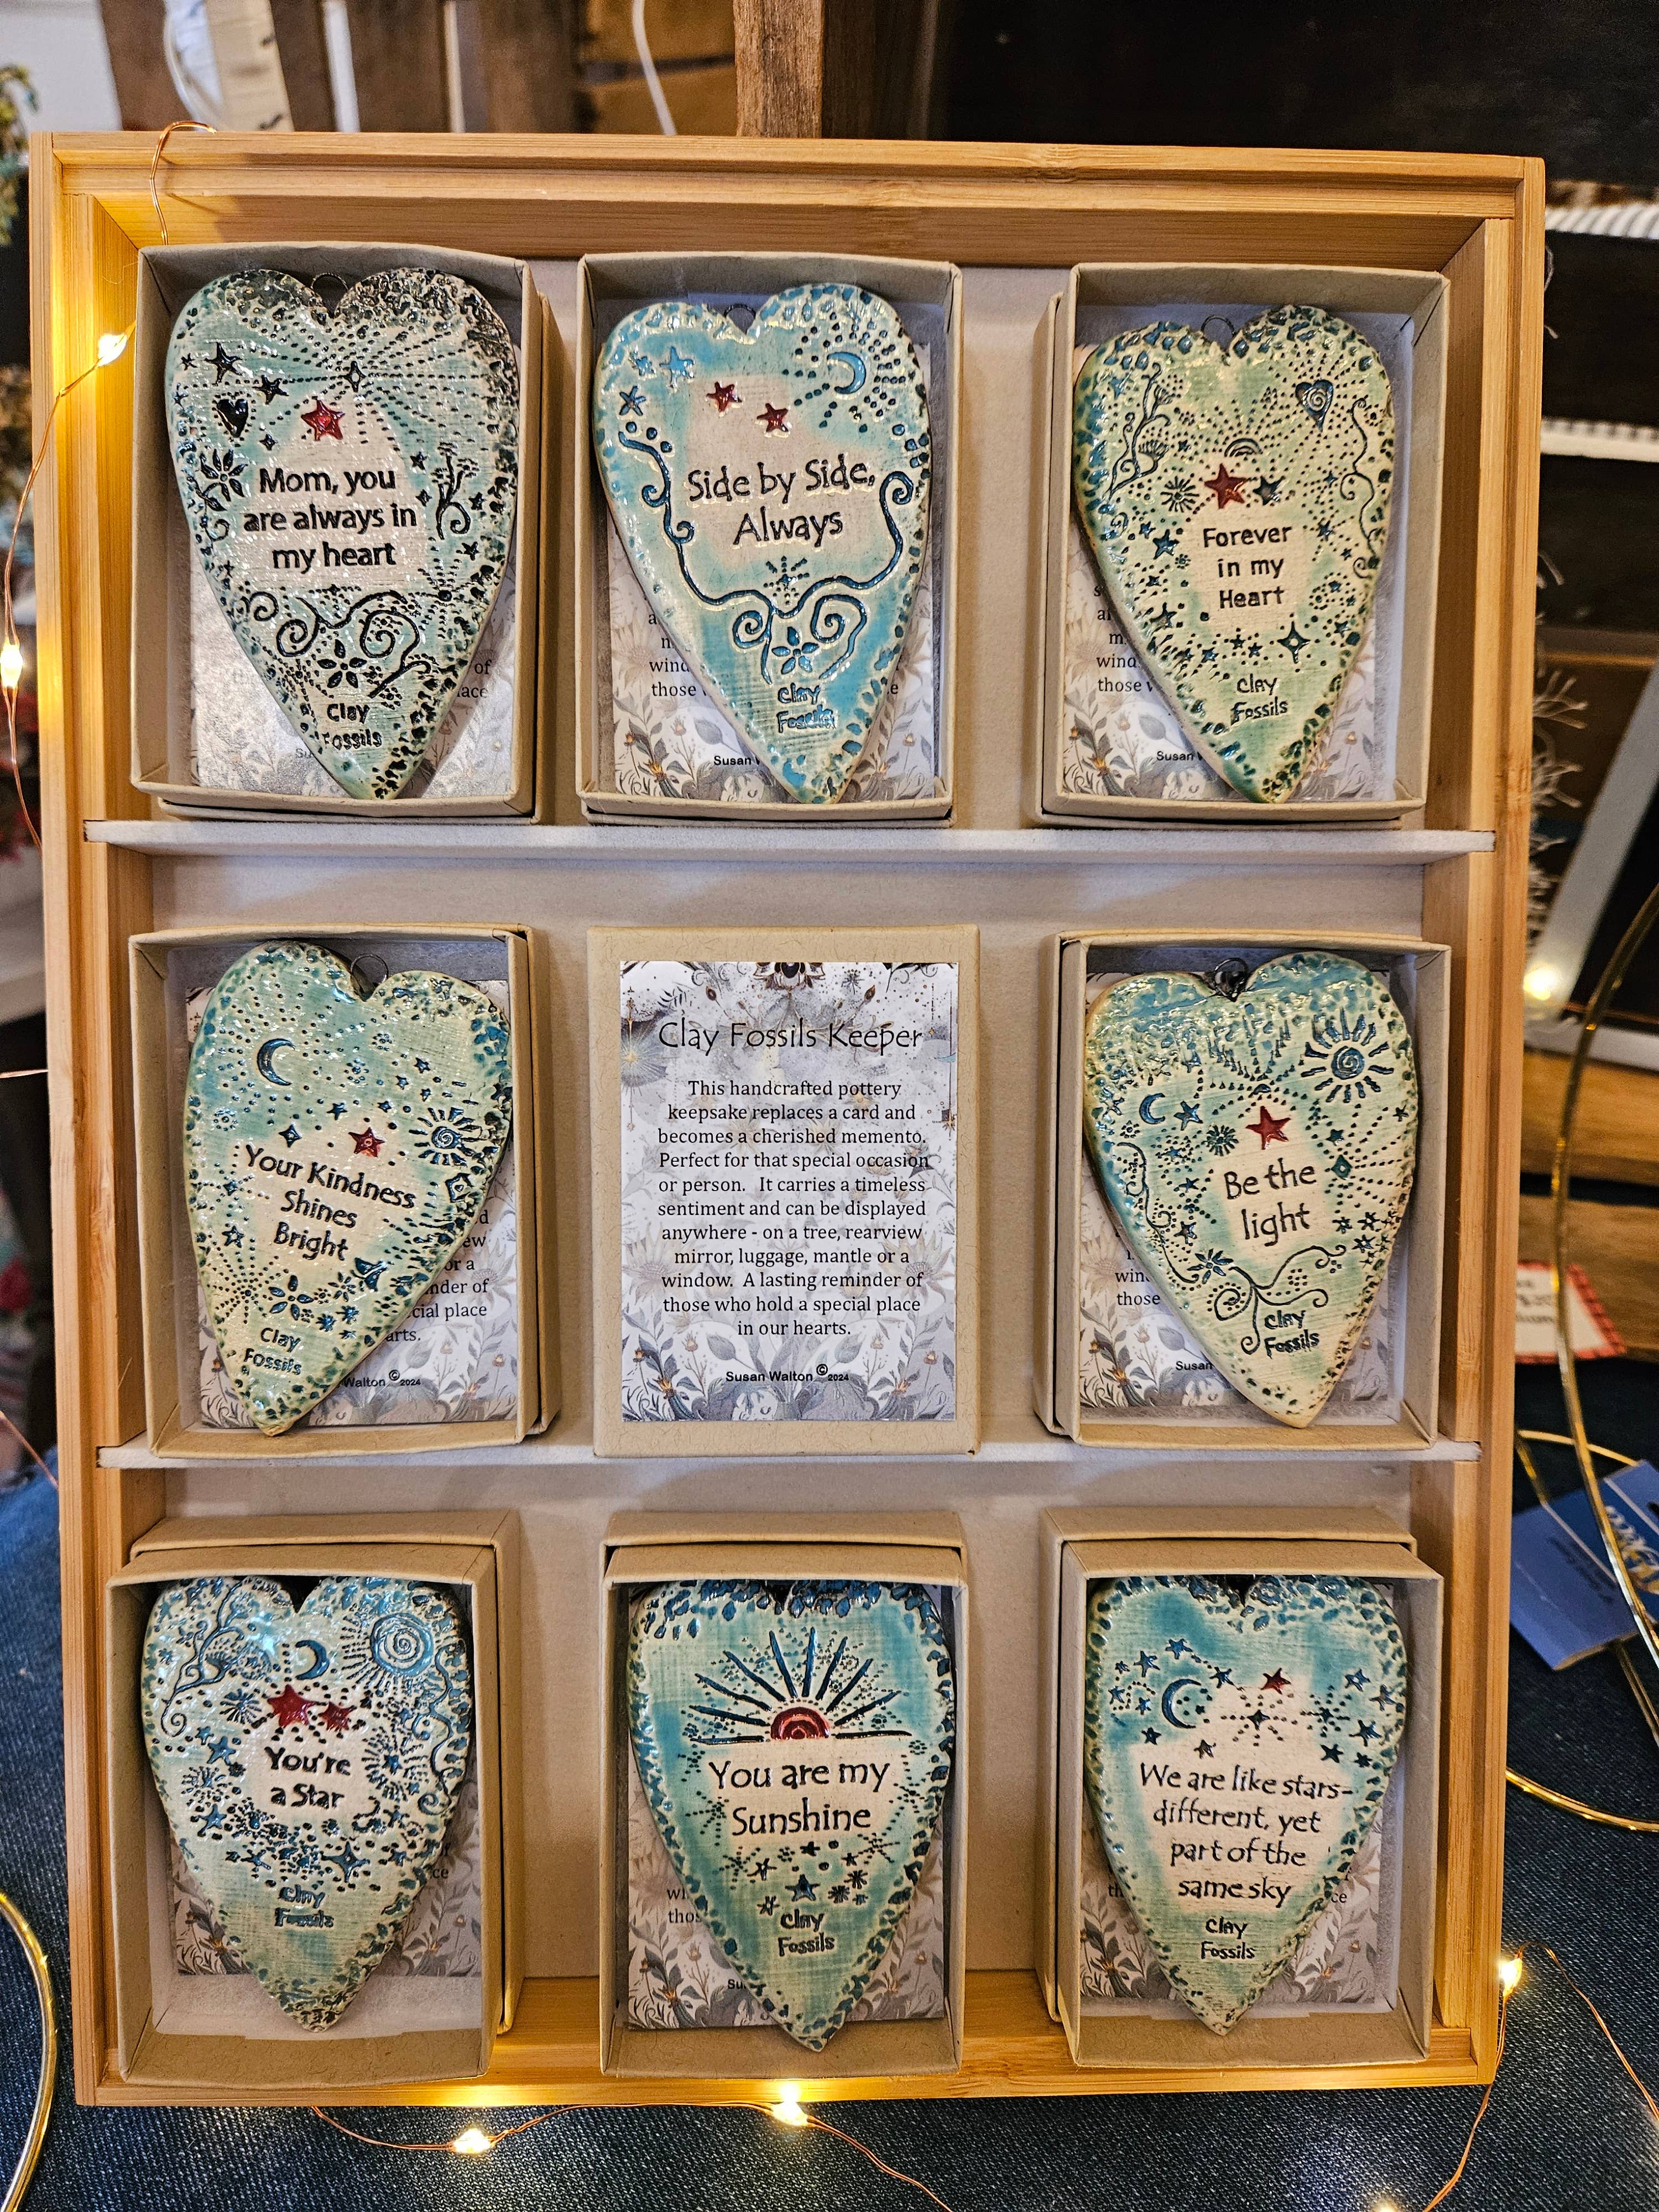 Mom, you
are always in
my heart
Clay
Fossils
of
lace
Side by Side,
Always
Clay
Fossils
wind
those
Susan
Forever
in my
Heart
Clay
Fossils
wind
those
Susan
Your Kindness
Shines
Bright
Clay
Fossils
or a
nder of
cial place
arts.
Walton © 2024
Clay Fossils Keeper
This handcrafted pottery
keepsake replaces a card and
becomes a cherished memento.
Perfect for that special occasion
or person. It carries a timeless
sentiment and can be displayed
anywhere - on a tree, rearview
mirror, luggage, mantle or a
window. A lasting reminder of
those who hold a special place
in our hearts.
Susan Walton © 2024
Be the
light
Clay
Fossils
win
those
Susan
You're
a Star
Clay
Fossils
ce
You are my
Sunshine
Clay
Fossils
thos
Su
We are like stars-
different, yet
part of the
same sky
Clay
Fossils
th
ce